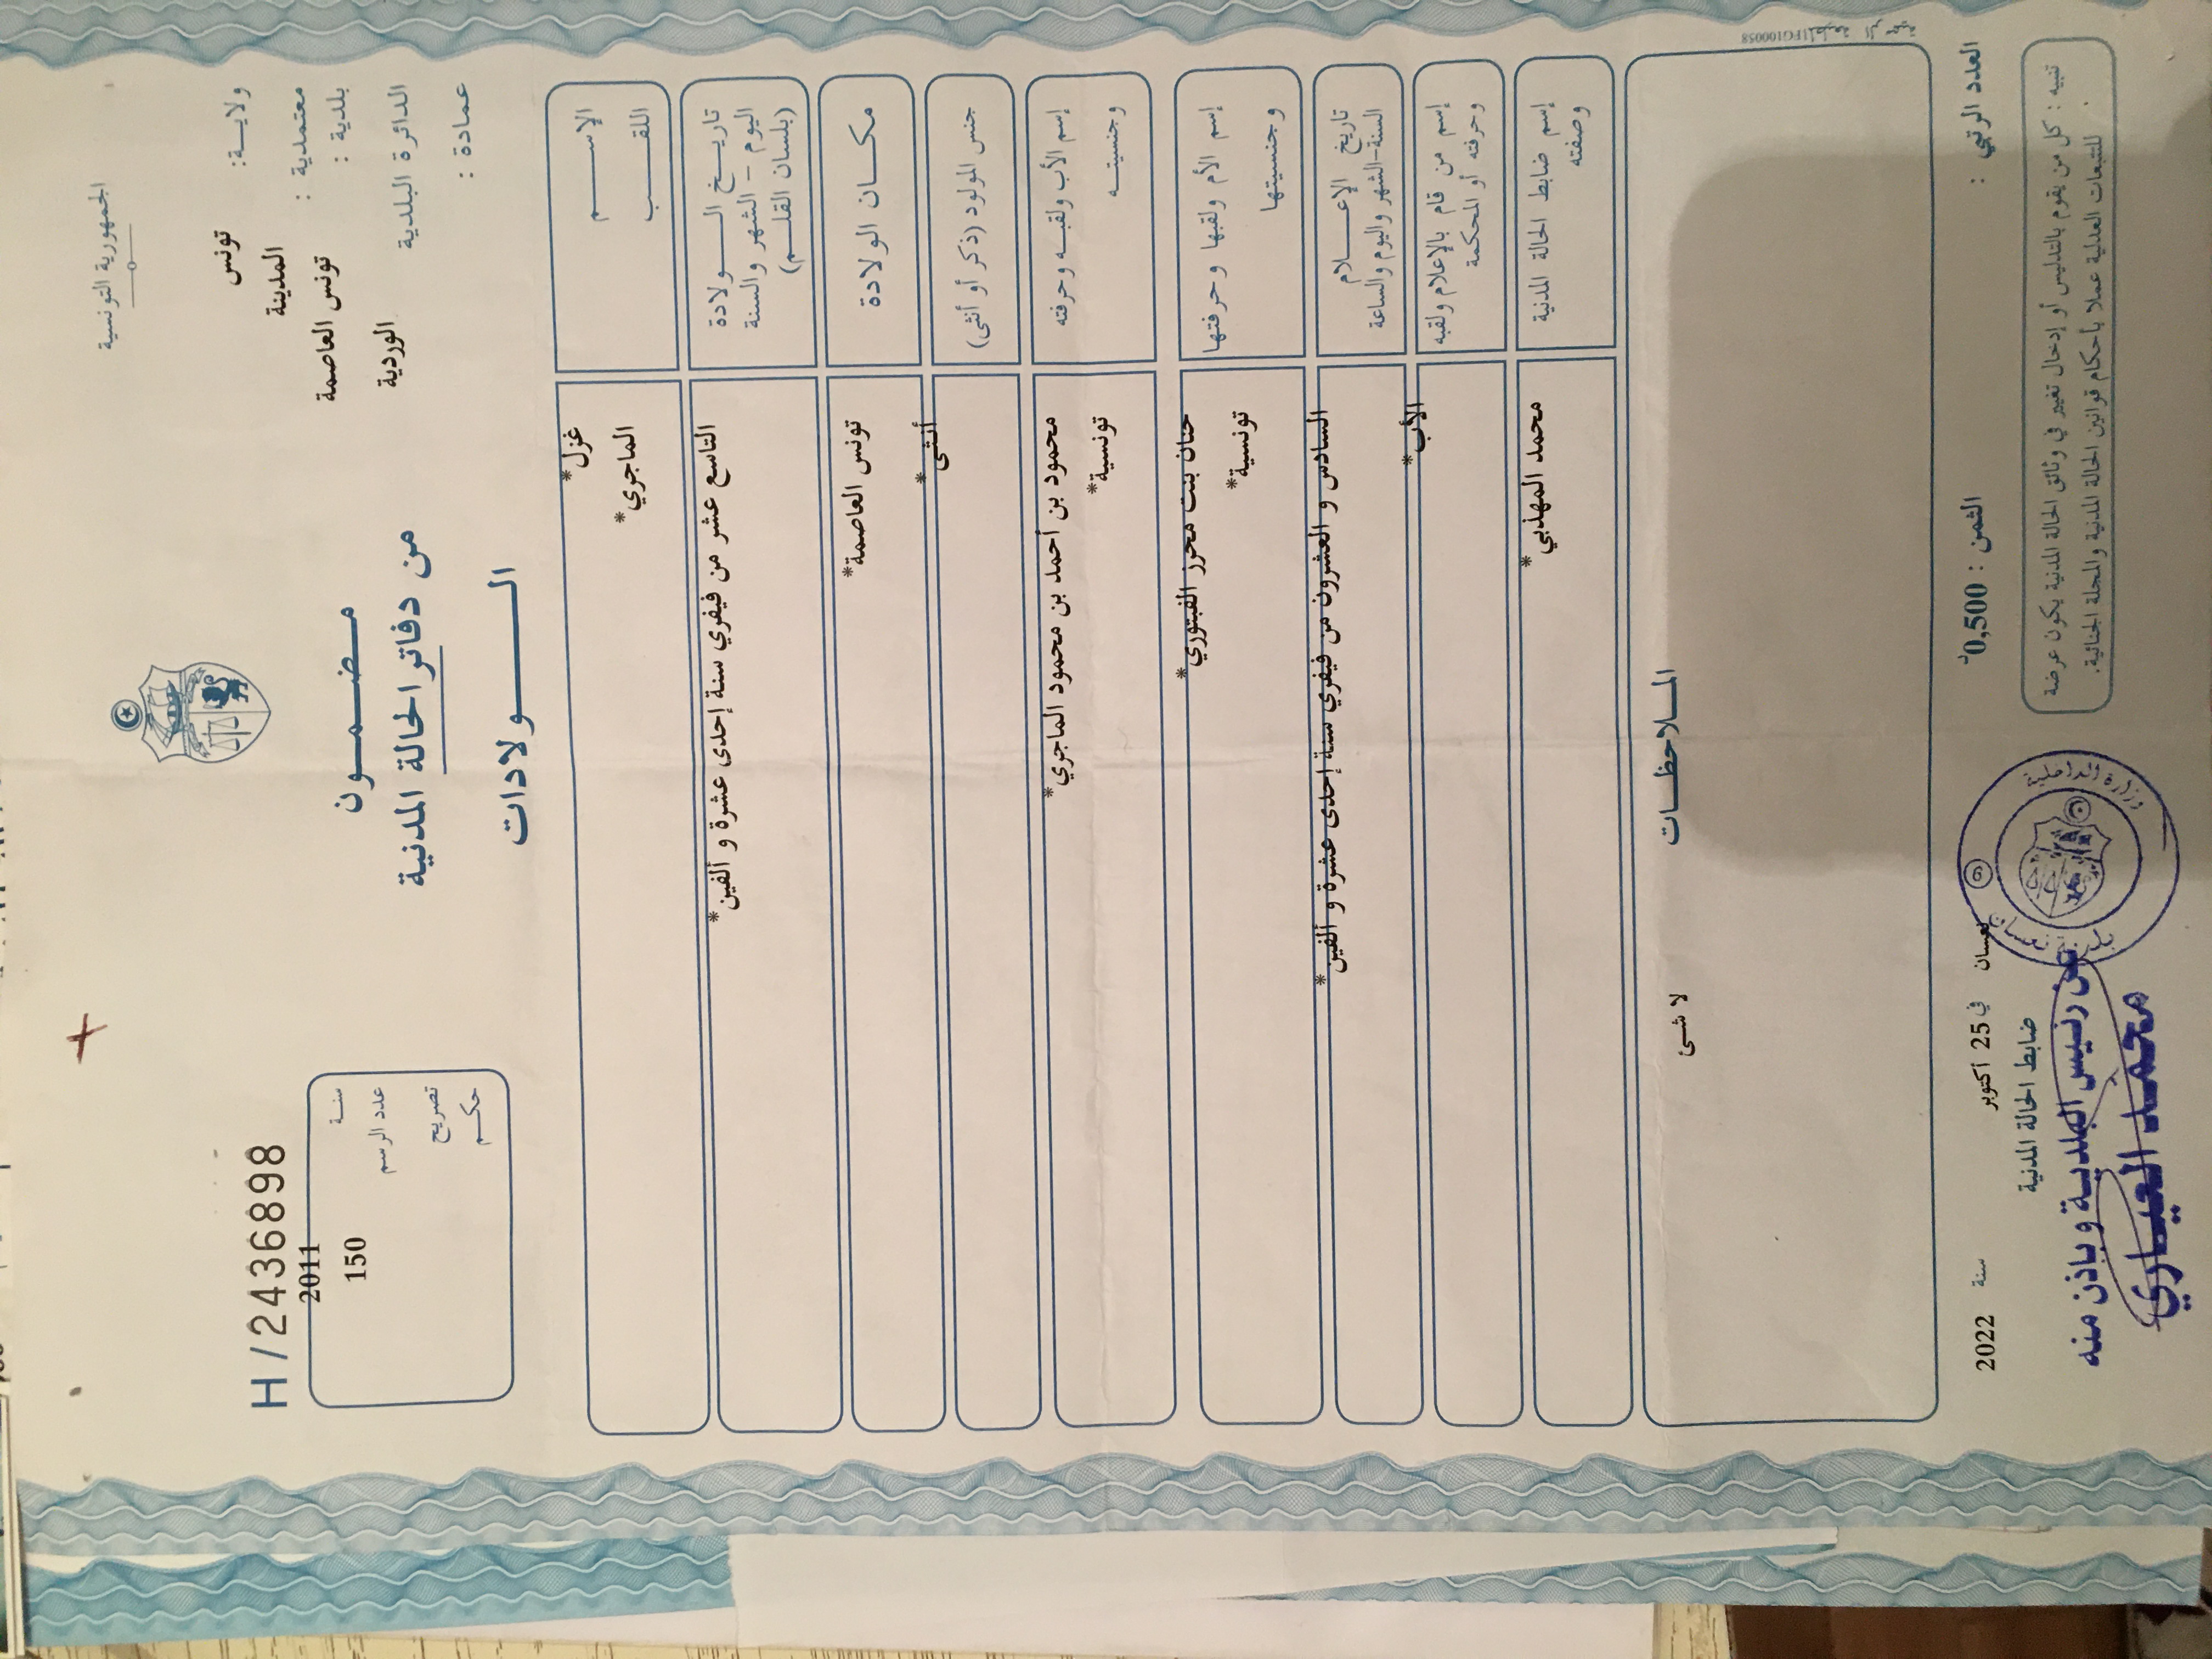 الجمهورية التونسية
ولايـــة: تونس
معتمدية : المدينة
بلدية : تونس العاصمة
الدائرة البلدية الوردية
عمادة :
مضمـــون
من دفاتر الحالة المدنية
الــــولادات
H/24368898
سنــة 2011
عدد الرسم 150
تصريح
حكـــم
الإســـــم
غزل*
اللقـــــب
الماجري*
تاريـــخ الـــــولادة
اليوم – الشهر والسنة
(بلسان القلـــم)
التاسع عشر من فيفري سنة إحدى عشرة و ألفين*
مكـــان الولادة
تونس العاصمة*
جنس المولود (ذكر أو أنثى)
أنثى*
إسم الأب ولقبـــه وحرفته
محمود بن أحمد بن محمود الماجري*
وجنسيتـــه
تونسية*
إسم الأم ولقبها وحرفتها
حنان بنت محرز الفيتوري*
وجنسيتها
تونسية*
تاريخ الإعـــــلام
السنة-الشهر واليوم والساعة
السادس و العشرون من فيفري سنة إحدى عشرة و ألفين*
إسم من قام بالإعلام ولقبه
وحرفته أو المحكمة
الأب*
إسم ضابط الحالة المدنية
وصفته
محمد المهذبي*
المـــلاحظـــات
لا شئ
العدد الرتبي :
الثمن : 0,500د
نعسان في 25 أكتوبر سنة 2022
ضابط الحالة المدنية
تنبيه : كل من يقوم بالتدليس أو إدخال تغيير في وثائق الحالة المدنية يكون عرضة
للتتبعات العدلية عملا بأحكام قوانين الحالة المدنية والمجلة الجنائية.
وزارة الداخلية
بلدية نعسان
6
عن رئيس البلدية و باذن منه
محمد العيساري